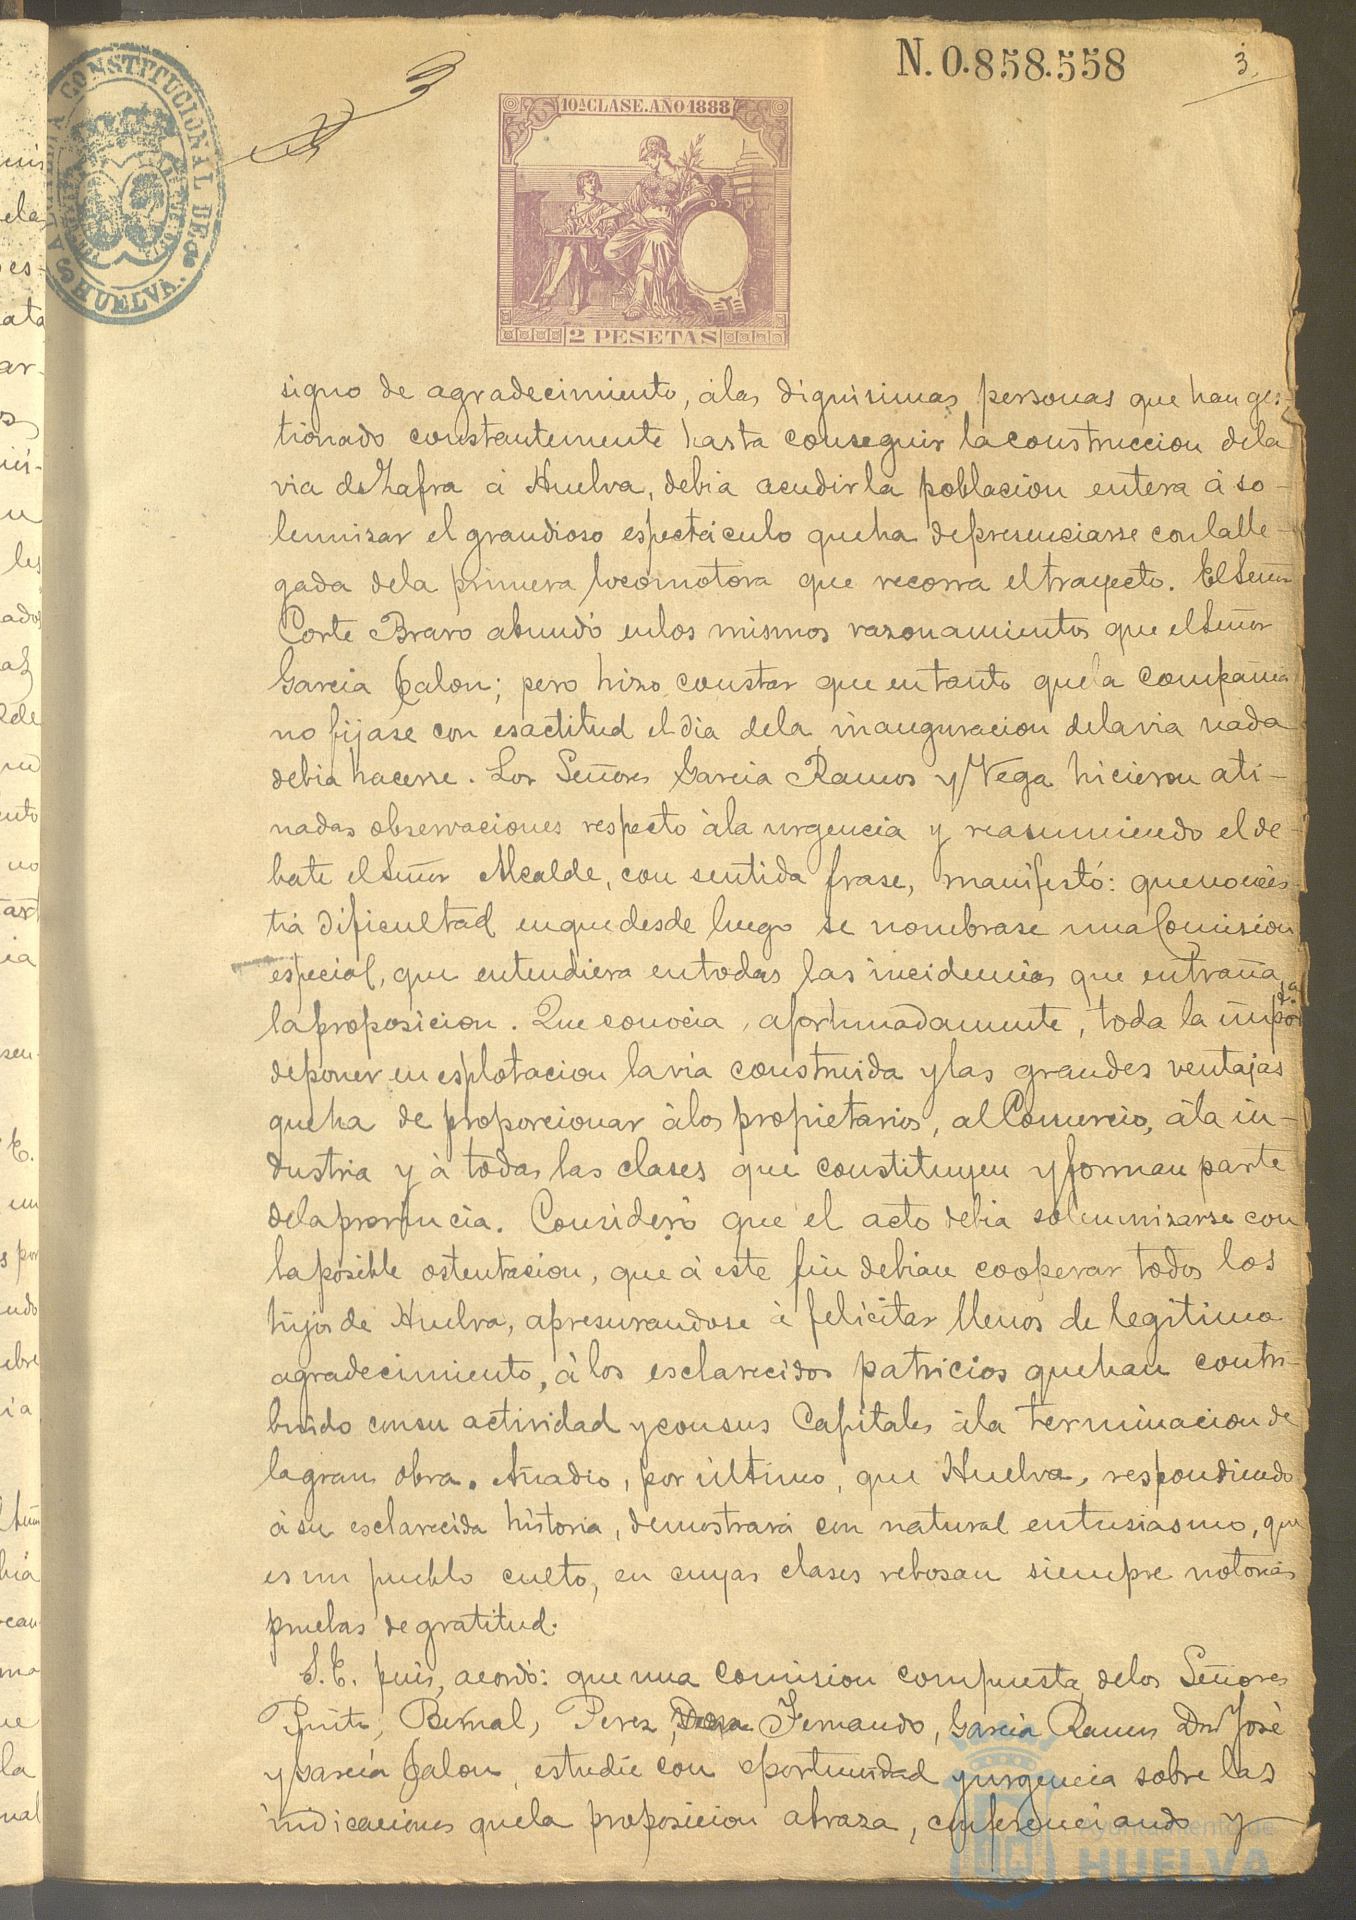 N. 0.858.558
3
3
ALCALDIA CONSTITUCIONAL DE
HUELVA.
10ª CLASE. AÑO 1888
2 PESETAS
signo de agradecimiento, á las dignisimas personas que han ges-
tionado constantemente hasta conseguir la construccion dela
via de Zafra á Huelva, debia acudir la poblacion entera á so-
lemnizar el grandioso espectáculo que ha de presenciarse con la lle-
gada dela primera locomotora que recorra el trayecto. El Señor
Corte Bravo abundó en los mismos razonamientos que el Señor
Garcia Jalon; pero hizo constar que en tanto que la compañia
no fijase con esactitud el dia dela inauguracion dela via nada
debia hacerse. Los Señores Garcia Ramos y Vega hicieron ati-
nadas observaciones respecto á la urgencia y reasumiendo el de-
bate el Señor Alcalde, con sentida frase, manifestó: que no ecsis-
tiá dificultad en que desde luego se nombrase una Comision
especial, que entendiera en todas las incidencias que entraña
la proposicion. Que conocia, afortunadamente, toda la impor
de poner en esplotacion la via construida y las grandes ventajas
que ha de proporcionar á los propietarios, al Comercio, á la in-
dustria y á todas las clases que constituyen y forman parte
dela provincia. Consideró que el acto debia solemnizarse con
la posible ostentacion, que á este fin debian cooperar todos los
hijos de Huelva, apresurandose á felicitar llenos de legitimo
agradecimiento, á los esclarecidos patricios que han contri-
buido con su actividad y con sus Capitales á la terminacion de
la gran obra. Añadio, por último, que Huelva, respondiendo
á su esclarecida historia, demostrará con natural entusiasmo, que
es un pueblo culto, en cuyas clases rebosan siempre notorias
pruebas de gratitud.
S. E. pues, acordó: que una comision compuesta delos Señores
Bernal, Perez, Fernando, Garcia Ramos Don José
y Garcia Jalon, estudie con oportunidad y urgencia sobre las
indicaciones que la proposicion abraza, conferenciando y
Ayuntamiento de
HUELVA